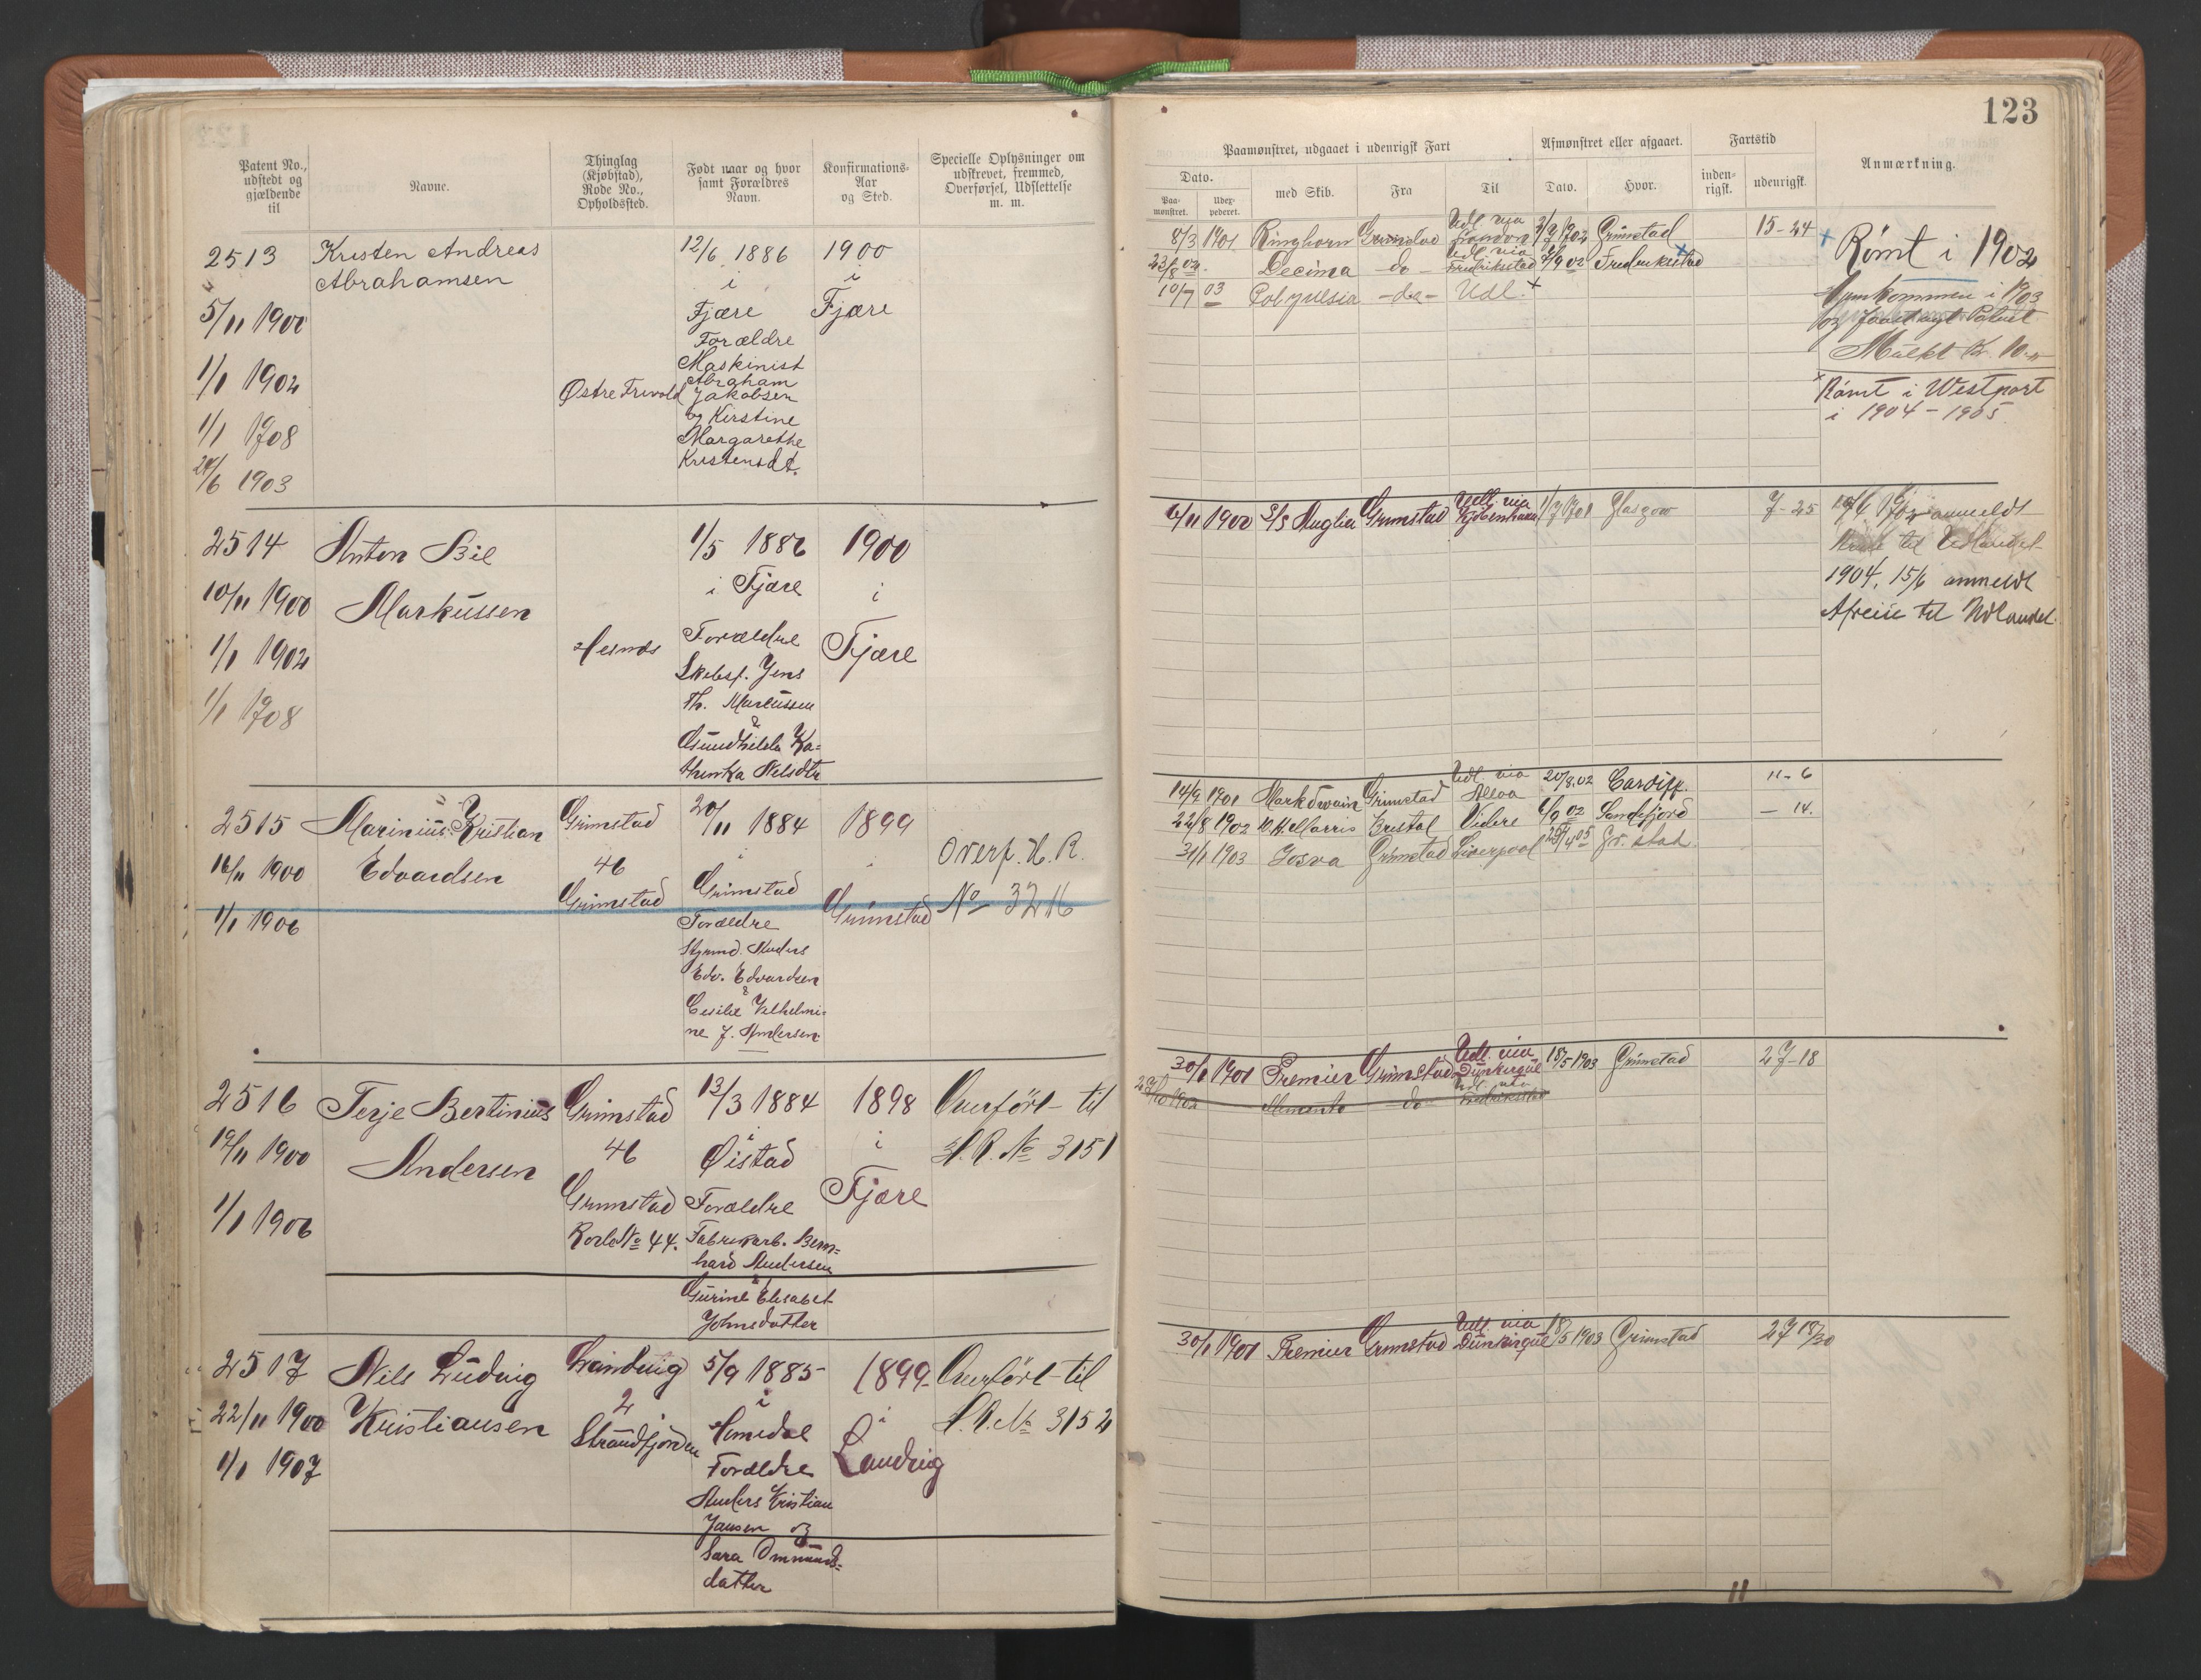 123
Patent No.,
udstedt og
gjældende
til
Navne.
Thinglag
(Kjøbstad),
Rode No.,
Opholdssted.
Født naar og hvor
samt Forældres
Navn.
Konfirmations-
Aar
og Sted.
Specielle Oplysninger om
udskrevet, fremmed,
Overførsel, Udslettelse
m. m.
Paamønstret, udgaaet i udenrigsk Fart
Dato.
Paa-
mønstret.
Udex-
pederet.
med Skib.
Fra
Til
Afmønstret eller afgaaet.
Dato.
Hvor.
Fartstid
inden-
rigsk.
udenrigsk.
Anmærkning.
2513
5/11 1900
1/1 1902
1/1 1908
24/6 1903
Kristen Andreas
Abrahamsen
Østre Frivold
12/6 1886
i
Fjære
Forældre
Maskinist
Abraham
Jakobsen
og Kirstine
Margarethe
Kristensdt.
1900
i
Fjære
8/3 1901 Ringhorn Grimstad Udl. via London 1902 Grimstad 15-24
23/8 02. Decima -do- Udl. via Fredriksstad 7/9 02 Frederiksstad
10/7 03 Polynesia -do- Udl.
Rømt i 1902
Hjemkommen i 1903
og Patent.
Mulkt Kr. 10.-
Rømt i Westport
i 1904-1905
2514
10/11 1900
1/1 1902
1/1 1908
Anton Bie
Markussen
Hesnes
1/5 1886
i Fjære
Forældre
Skibsf. Jens
Th. Markussen
&
Gundhilda Ka-
thinka Nilsdtr
1900
i
Fjære
6/11 1900 S/S Anglia Grimstad Udl. via Kjøbenhavn 1901 Glasgow 7-25
1902 anmeldt
til Udlandet
1904, 15/6 anmeldt
Afreise til Udlandet.
2515
16/11 1900
1/1 1906
Marinius Kristian
Edvardsen
Grimstad
46
Grimstad
20/11 1884
i
Grimstad
Forældre
Styrmd. Anders
Edv. Edvardsen
&
Cesilie Vilhelmi-
ne J. Andersen
1899
i
Grimstad
Overf. H. R.
No 3216
14/9 1901 Mark Twain Grimstad Udl. via Alloa 20/8.02 Cardiff. 11-6
22/8 1902 W. H. Morris Bristol Videre 6/9 02 Sandefjord - 14.
31/1 1903 Josva Grimstad Liverpool 05 Gr. stad.
2516
19/11 1900
1/1 1906
Terje Bertinius
Andersen
Grimstad
46
Grimstad
Rode No 44.
13/3 1884
i
Øistad
Forældre
Fabrikarb. Bern-
hard Andersen
&
Gurine Elisabet
Johnsdatter
1898
i
Fjære
Overført til
H. R. No 3151
30/1 1901 Premier Grimstad Udl. via Dünkerque 18/5 1903 Grimstad 27-18
27/10 1902 Memento -do- Udl. via Fredriksstad
2517
22/11 1900
1/1 1907
Nils Ludvig
Kristiansen
Landvig
2
Strandfjorden
5/9 1885
i
Homedal
Forældre
Anders Kristian
Jansen og
Sara Omunds-
datter
1899
i
Landvig
Overført til
H. R. No 3152
30/1 1901 Premier Grimstad Udl. via Dünkirque 18/5 1903 Grimstad 27 18/30
11